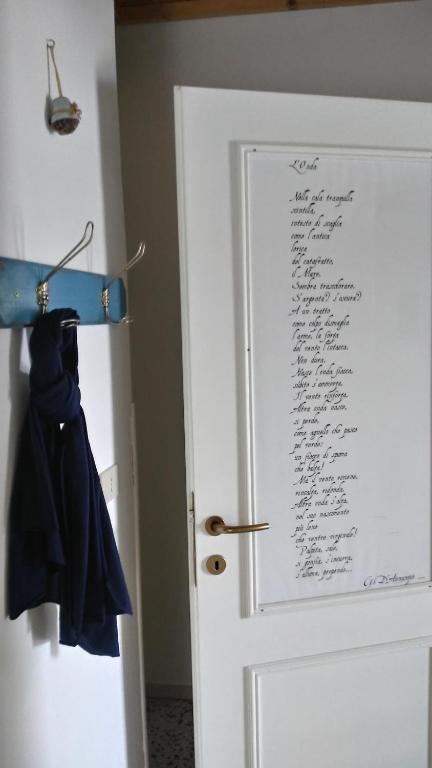 L'Onda
Nella cala tranquilla
scintilla,
intesto di scaglia
come l'antica
lorica
del catafratto,
il Mare.
Sembra trascolorare.
S'argenta? s'oscura?
A un tratto
come colpo dismaglia
l'arme, la forza
del vento l'intacca.
Non dura.
Nasce l'onda fiacca,
subito s'ammorza.
Il vento rinforza.
Altra onda nasce,
si perde,
come agnello che pasce
pel verde:
un fiocco di spuma
che balza!
Ma il vento riviene,
rincalza, ridonda.
Altra onda s'alza,
nel suo nascimento
più lene
che ventre virginale!
Palpita, sale,
si gonfia, s'incurva,
s'alluma, propende...
G. D'Annunzio